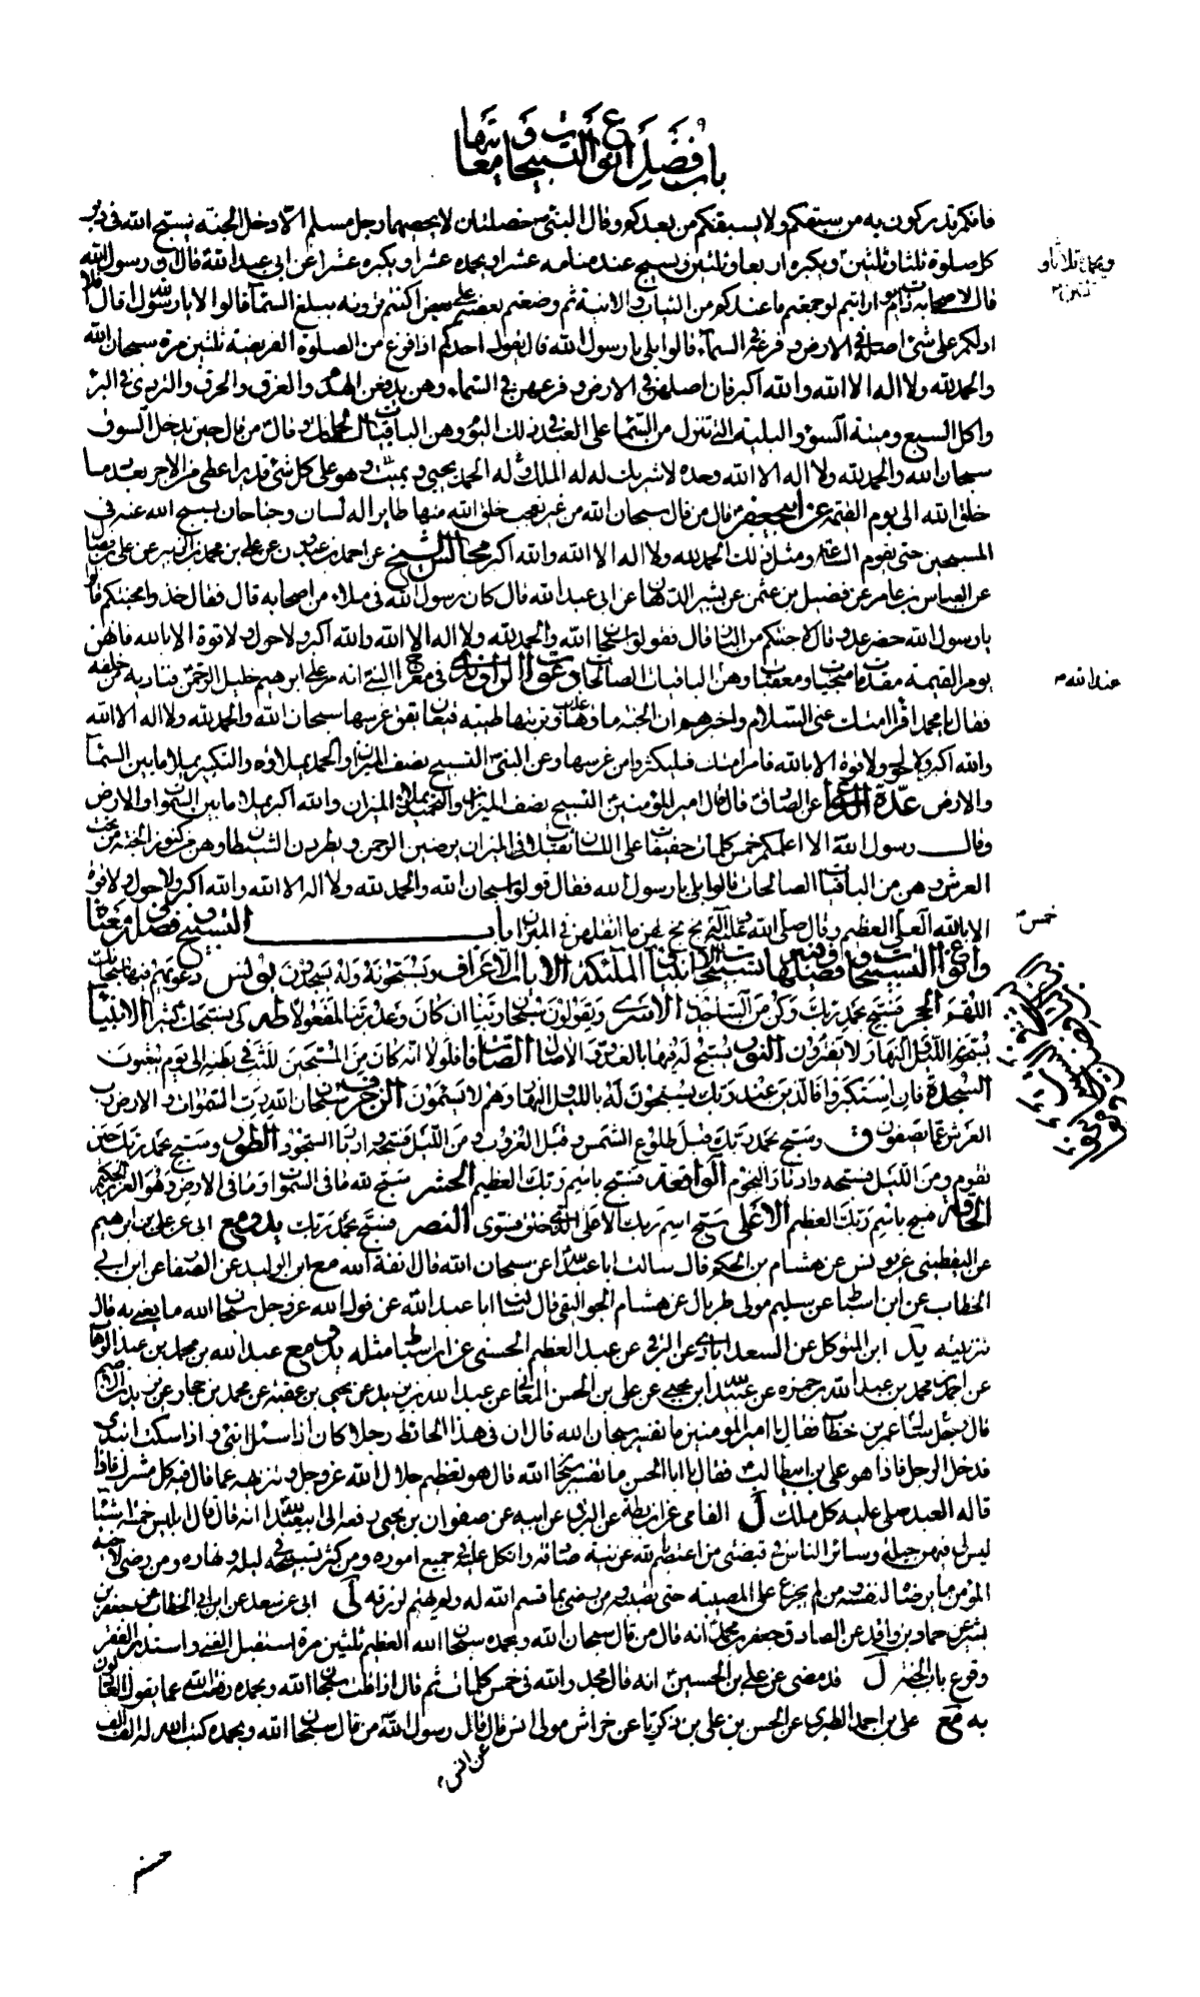 باب فضل أنواع التسبيحات و معانيها
فانكم تدركون به من سبقكم ولا يسبقكم من بعدكم وقال النبي خصلتان لا يحصيهما رجل مسلم الا دخل الجنة يسبح الله في دبر
كل صلوة ثلثا وثلثين ويكبره اربعا وثلثين ويسبح عند منامه عشرا ويحمده عشرا ويكبره عشرا عن ابي عبد الله قال رسول الله
قال لاصحابه ذات يوم ارايتم لو جمعتم ما عندكم من الثياب والانية ثم وضعتم بعضه على بعض اكنتم ترونه يبلغ السماء قالوا لا يا رسول الله قال افلا
ادلكم على شئ اصله في الارض وفرعه في السماء قالوا بلى يا رسول الله قال يقول احدكم اذا فرغ من الصلوة الفريضة ثلثين مرة سبحان الله
والحمد لله ولا اله الا الله والله اكبر فان اصلهن في الارض وفرعهن في السماء وهن يدفعن الهدم والغرق والحرق والتردي في البئر
واكل السبع وميتة السوء والبلية التي تنزل من السماء على العبد في ذلك اليوم وهن الباقيات الصالحات وقال من قال حين يدخل السوق
سبحان الله والحمد لله ولا اله الا الله وحده لا شريك له له الملك وله الحمد يحيي ويميت وهو على كل شئ قدير اعطى من الاجر بعدد ما
خلق الله الى يوم القيمة عن ابي جعفر قال من قال سبحان الله من غير تعجب خلق الله منها طايرا له لسان وجناحان يسبح الله عنه في
المسبحين حتى تقوم الساعة ومثل ذلك الحمد لله ولا اله الا الله والله اكبر مجالس الشيخ عن احمد بن عبدون عن علي بن محمد بن الزبير عن علي بن فضال
عن العباس بن عامر عن فضيل بن عثمن عن بشير الدهان عن ابي عبد الله قال كان رسول الله في ملاء من اصحابه قال فقال خذوا جنتكم قالوا
يا رسول الله حضر عدو قال لا جنتكم من النار قال فقولوا سبحان الله والحمد لله ولا اله الا الله والله اكبر ولا حول ولا قوة الا بالله فانهن
يوم القيمة مقدمات منجيات ومعقبات وهن الباقيات الصالحات دعوات الراوندي في معراج النبي انه مر على ابرهيم خليل الرحمن فناداه من خلفه
فقال يا محمد اقرأ امتك عني السلام واخبرهم ان الجنة ماؤها عذب وتربتها طيبة قيعان يقق غرسها سبحان الله والحمد لله ولا اله الا الله
والله اكبر ولا حول ولا قوة الا بالله فامر امتك فليكثروا من غرسها وعن النبي التسبيح نصف الميزان والحمد يملاؤه والتكبير يملا ما بين السماء
والارض عدة الداعي عن الصادق قال قال امير المؤمنين التسبيح نصف الميزان والتحميد يملا الميزان والله اكبر يملا ما بين السموات والارض
وقال رسول الله الا اعلمكم خمس كلمات خفيفات على اللسان ثقيلات في الميزان يرضين الرحمن ويطردن الشيطان وهن من كنوز الجنة من تحت
العرش وهن من الباقيات الصالحات قالوا بلى يا رسول الله فقال قولوا سبحان الله والحمد لله ولا اله الا الله والله اكبر ولا حول ولا قوة
الا بالله العلي العظيم وقال صلى الله عليه وآله بخ بخ لهن ما اثقلهن في الميزان باب التسبيح وفضله ومعناه
وانواع التسبيحات وفضلها الايات الاعراف ويسبحونه وله يسجدون يونس دعويهم فيها سبحانك
اللهم الحجر فسبح بحمد ربك وكن من الساجدين الاسرى ويقولون سبحان ربنا ان كان وعد ربنا لمفعولا طه كي نسبحك كثيرا الانبياء
يسبحون الليل والنهار لا يفترون النور يسبح له فيها بالغدو والاصال الصافات فلولا انه كان من المسبحين للبث في بطنه الى يوم يبعثون
السجدة فان استكبروا فالذين عند ربك يسبحون له بالليل والنهار وهم لا يسئمون الزخرف سبحان رب السموات والارض رب
العرش عما يصفون ق وسبح بحمد ربك قبل طلوع الشمس وقبل الغروب ومن الليل فسبحه وادبار السجود الطور وسبح بحمد ربك حين
تقوم ومن الليل فسبحه وادبار النجوم الواقعة فسبح باسم ربك العظيم الحشر سبح لله ما في السموات وما في الارض وهو العزيز الحكيم
الحاقة فسبح باسم ربك العظيم الاعلى سبح اسم ربك الاعلى الذي خلق فسوى النصر فسبح بحمد ربك يد ومع ابي عن علي بن ابرهيم
عن اليقطيني عن يونس عن هشام بن الحكم قال سالت ابا عبد الله عن سبحان الله قال انفة الله مع ابن الوليد عن الصفار عن ابن ابي
الخطاب عن ابن اسباط عن سليم مولى طربال عن هشام الجواليقي قال سالت ابا عبد الله عن قول الله عز وجل سبحان الله ما يعني به قال
تنزيهه يد ابن المتوكل عن السعدابادي عن البرقي عن عبد العظيم الحسني عن ابن اسباط مثله يد مع عبد الله بن محمد بن عبد الوهاب
عن احمد بن محمد بن عبد الله بن حمزة عن عبيد الله بن يحيى عن علي بن الحسن المعاني عن عبد الله بن يزيد عن يحيى بن عقبة عن محمد بن حجار عن يزيد بن الاصم
قال سئل رجل عمر بن خطاب فقال يا امير المؤمنين ما تفسير سبحان الله قال ان في هذا الحائط رجلا كان اذا سئل انبئ واذا سكت ابتدئ
فدخل الرجل فاذا هو علي بن ابي طالب فقال يا ابا الحسن ما تفسير سبحان الله قال هو تعظيم جلال الله عز وجل وتنزيهه عما قال فيه كل مشرك فاذا
قاله العبد صلى عليه كل ملك ل الفامي عن ابن بطة عن البرقي عن ابيه عن صفوان بن يحيى رفعه الى ابي عبد الله انه قال قال ابليس خمسة اشياء
ليس لي فيهن حيلة وسائر الناس في قبضتي من اعتصم بالله عن نية صادقة واتكل عليه في جميع اموره ومن كثر تسبيحه في ليله ونهاره ومن رضي لاخيه
المؤمن ما يرضاه لنفسه ومن لم يجزع على المصيبة حتى تصيبه ومن رضي بما قسم الله له ولم يهتم لرزقه لي ابي عن سعد عن ابن ابي الخطاب عن جعفر بن
بشير عن حماد بن واقد عن الصادق جعفر بن محمد انه قال من قال سبحان الله وبحمده سبحان الله العظيم ثلثين مرة استقبل الغنى واستدبر الفقر
وقرع باب الجنة ل قد مضى عن علي بن الحسين انه قال مجدوا الله في خمس كلمات ثم قال اذا قلت سبحان الله وبحمده رفعت الله عما يقول العادلون
به مع علي بن احمد الطبري عن الحسن بن علي بن زكريا عن خراش مولى انس قال قال رسول الله من قال سبحان الله وبحمده كتب الله له الف الف
عن انس
حسنة
ويحمد ثلاثا و
ثلثين
عند الله
خمس